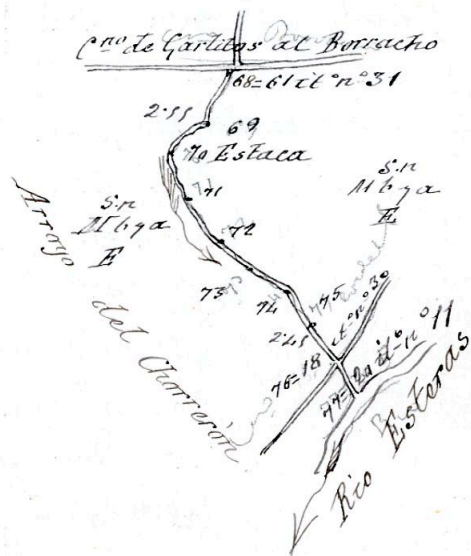 Cno de Garlitos al Borracho
68=61 it° n° 31
2·55
69
70 Estaca
71
S.n
M b g a
E
S.n
M b g a
E
72
73
74
75
2·45
76=18
it° n° 30
77=20 it° n° 11
Arroyo del Chorrerón
Río Esteras